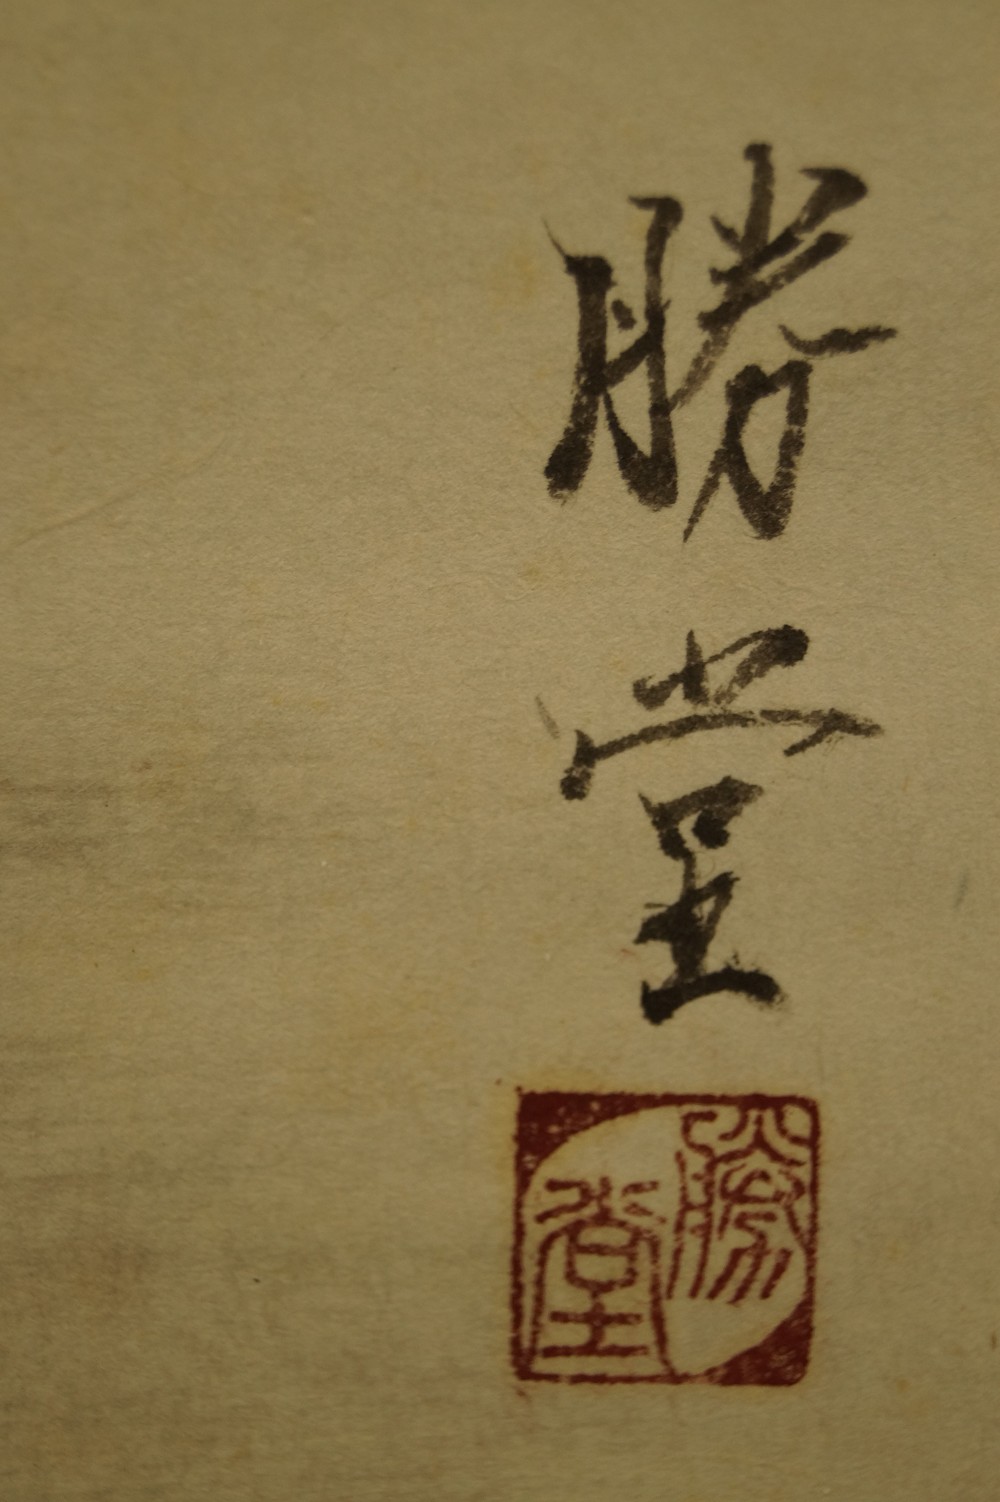 勝堂
勝堂